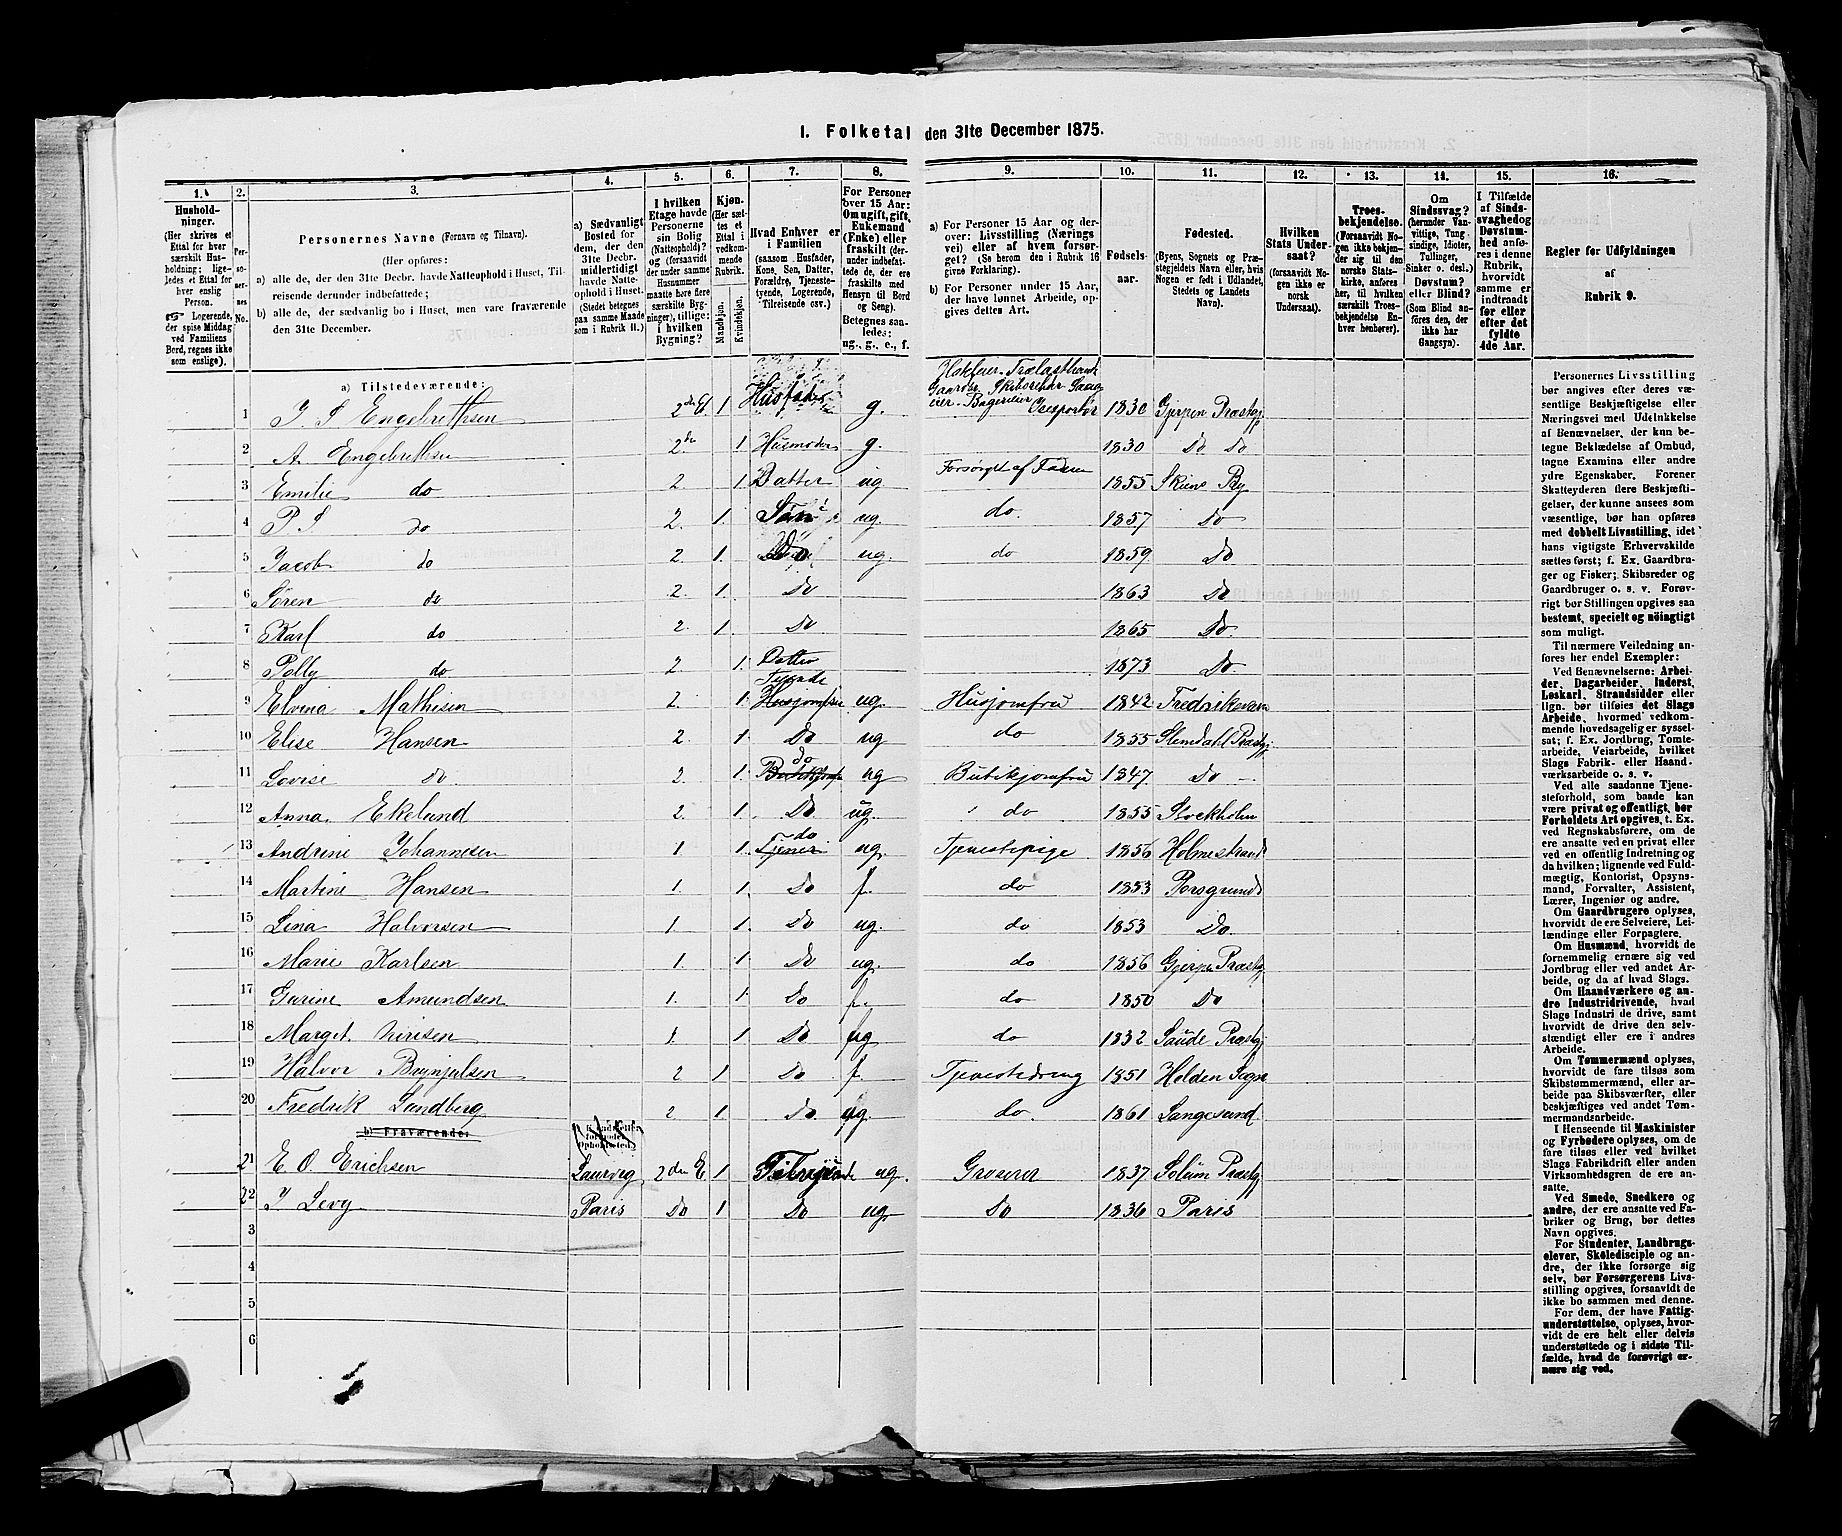 1. Folketal den 31te December 1875.
1. 2. 3. 4. 5. 6. 7. 8. 9. 10. 11. 12. 13. 14. 15. 16.
Husholdninger.
(Her skrives et
Ettal for hver
særskilt Husholdning;
ligeledes et Ettal for
hver enslig
Person.
Logerende,
der spise Middag
ved Familiens
Bord, regnes ikke
som enslige).
Personernes No.
Personernes Navne (Fornavn og Tilnavn).
(Her opføres:
a) alle de, der den 31te Decbr. havde Natteophold i Huset, Tilreisende derunder indbefattede;
b) alle de, der sædvanlig bo i Huset, men vare fraværende
den 31te December.
a) Sædvanligt
Bosted for
dem, der den
31te Decbr.
midlertidigt
havde Natteophold i Huset.
(Stedet betegnes
paa samme Maade
som i Rubrik 11.)
I hvilken
Etage havde
Personerne
sin Bolig
(Natteophold)?
og (forsaavidt
der under samme
Husnummer
maatte høre flere
særskilte Bygninger), tillige:
i hvilken
Bygning?
Kjøn.
(Her sættes et
Ettal i
vedkommende
Rubrik.
Mandkjøn.
Kvindekjøn.
Hvad Enhver er
i Familien
(saasom Husfader,
Kone, Søn, Datter,
Forældre, Tjenestetyende, Logerende,
Tilreisende osv.)
For Personer
over 15 Aar:
Om ugift, gift,
Enkemand
(Enke) eller
fraskilt (derunder indbefattede, de, der ere
fraskilte med
Hensyn til Bord
og Seng).
Betegnes saaledes:
ug., g., e., f.
a) For Personer 15 Aar og derover: Livsstilling (Næringsvei) eller af hvem forsørget? (Se herom den i Rubrik 16
givne Forklaring).
b) For Personer under 15 Aar,
der have lønnet Arbeide, opgives dettes Art.
Fødselsaar.
Fødested.
(Byens, Sognets og Præstegjeldets Navn eller, hvis
Nogen er født i Udlandet,
Stedets og Landets
Navn).
Hvilken
Stats Undersaat?
(forsaavidt Nogen ikke er
norsk
Undersaat).
Troesbekjendelse.
(Forsaavidt Nogen ikke bekjender sig til den
norske Statskirke, anføres
her, til hvilken
særskilt Troesbekjendelse Enhver henhører).
Om
Sindssvag?
(herunder Vanvittige, Tungsindige, Idioter,
Tullinger,
Sinker o. desl.)
Døvstum?
eller Blind?
(Som Blind anføres den, der
ikke har
Gangsyn).
I Tilfælde
af Sindssvaghed og
Døvstumhed anføres i denne
Rubrik,
hvorvidt
samme er
indtraadt
før eller
efter det
fyldte
4de Aar.
Regler for Udfyldningen
af
Rubrik 9.
a) Tilstedeværende:
1 I. S Engebrethsen 2den E 1 Husfader g. Gaardeier Skibsreder 1830 Gjerpen Præstgj
2 A Engebrethsen 2de 1 Husmoder g. 1830 Do Do
3 Emilie do 2. 1. Datter ug Forsørget af Faderen 1855 Skiens By
4 P S do 2. 1. Søn ug. do. 1857 Do
5 Jacob do 2 1. Do ug. do 1859. Do
6 Søren do 2. 1. Do 1863 Do
7 Karl do 2. 1. Do 1865 Do.
8 Polly do 2 1. Datter 1873 Do
9 Elvina Mathisen 2. 1. Tyende Husjomfru ug. Husjomfru 1842 Fredriksværn
10 Elise Hansen 2. 1. Do ug do 1855 Slemdahl Præstgj
11 Lovise do 2. 1. do ug Butikjomfru 1847. Do
12 Anna Ekelund 2 1. Do ug. do 1855 Stockholm
13 Andrine Johannesen 1 1. do Tjener ug. Tjenestepige 1856 Holmestrand
14 Martine Hansen 1. 1. Do f. do 1853 Porsgrund
15 Lina Halvorsen 1 1. Do ug. do 1853 Do.
16 Marie Karlsen 1. 1. Do ug. do 1856 Gjerpen Præstgj
17 Gurine Amundsen 1. 1 Do f. do 1850 Do
18 Marget 1. 1 Do ug do 1832 Saude Præstgj
19 Halvor Brynjulsen 2 1 Do f. Tjenestedreng 1851 Holden Sogn
20 Fredrik Lundberg 2 1. Do ug. do. 1861 Langesund.
b) Fraværende:
21 E O. Erichsen Laurvig 2den E 1 Tilreisende ug. Groserer 1837 Solum Præstgj
22 I Levy Paris Do 1 Do ug Do 1836 Paris
3
4
5
6
Personernes Livsstilling
bør angives efter deres væsentlige Beskjæftigelse eller
Næringsvei med Udelukkelse
af Benævnelser, der kun betegne Beklædelse af Ombud,
tagne Examina eller andre
ydre Egenskaber. Forener
Skatteyderen flere Beskjæftigelser, der kunne ansees som
væsentlige, bør han opføres
med dobbelt Livsstilling, idet
hans vigtigste Erhvervskilde
sættes først; f. Ex. Gaardbruger og Fisker; Skibsreder og
Gaardbruger o. s. v. Forøvrigt bør Stillingen opgives saa
bestemt, specielt og nøiagtigt
som muligt.
Til nærmere Veiledning anføres her endel Exempler:
Ved Benævnelserne: Arbeider, Dagarbeider, Inderst,
Løskarl, Strandsidder eller
lign. bør tilføies det Slags
Arbeide, hvormed vedkommende hovedsagelig er sysselsat; f. Ex. Jordbrug, Tomtearbeide, Veiarbeide, hvilket
Slags Fabrik- eller Haandværksarbeide o. s. v.
Ved alle saadanne Tjenesteforhold, som baade kan
være privat og offentligt, bør
Forholdets Art opgives, t. Ex.
ved Regnskabsførere, om de
ere ansatte ved en privat eller
ved en offentlig Indretning og
da hvilken; lignende ved Fuldmægtig, Kontorist, Opsynsmand, Forvalter, Assistent,
Lærer, Ingeniør og andre.
Om Gaardbrugere oplyses,
hvorvidt de ere Selveiere, Leilændinge eller Forpagtere.
Om Husmænd, hvorvidt de
fornemmelig ernære sig ved
Jordbrug eller ved andet Arbeide, og da af hvad Slags.
Om Haandværkere og andre Industridrivende, hvad
Slags Industri de drive, samt
hvorvidt de drive den selvstændigt eller ere i andres
Arbeide.
Om Tømmermænd oplyses,
hvorvidt de fare tilsøs som
Skibstømmermænd, eller arbeide paa Skibsværfter, eller
beskjæftiges ved andet Tømmermandsarbeide.
I Henseende til Maskinister
og Fyrbødere oplyses, om de
fare tilsøs eller ved hvilket
Slags Fabrikdrift eller anden
Virksomhedsgren de ere ansatte.
Ved Smede, Snedkere og
andre, der ere ansatte ved Fabriker og Brug, bør dettes
Navn opgives.
For Studenter, Landbrugselever, Skoledisciple og andre, der ikke forsørge sig
selv, bør Forsørgerens Livsstilling opgives, forsaavidt de
ikke bo sammen med denne.
For dem, der have Fattigunderstøttelse, oplyses, hvorvidt de ere helt eller delvis
understøttede og i sidste Tilfælde, hvad de forøvrigt ernære sig ved.